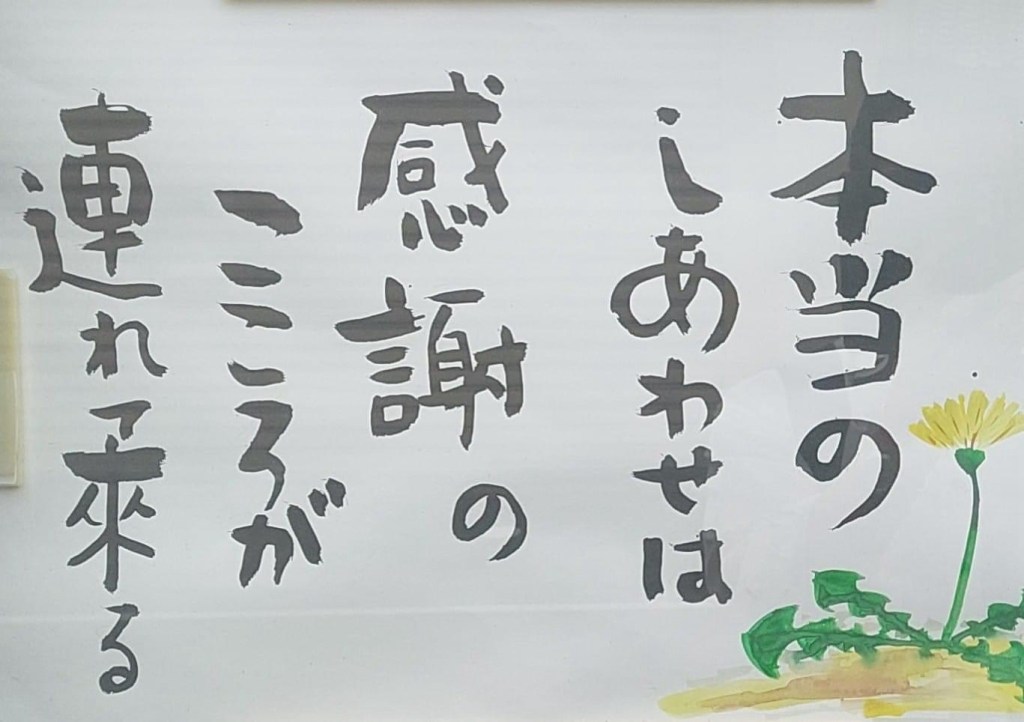 本当の
しあわせは
感謝の
こころが
連れて來る